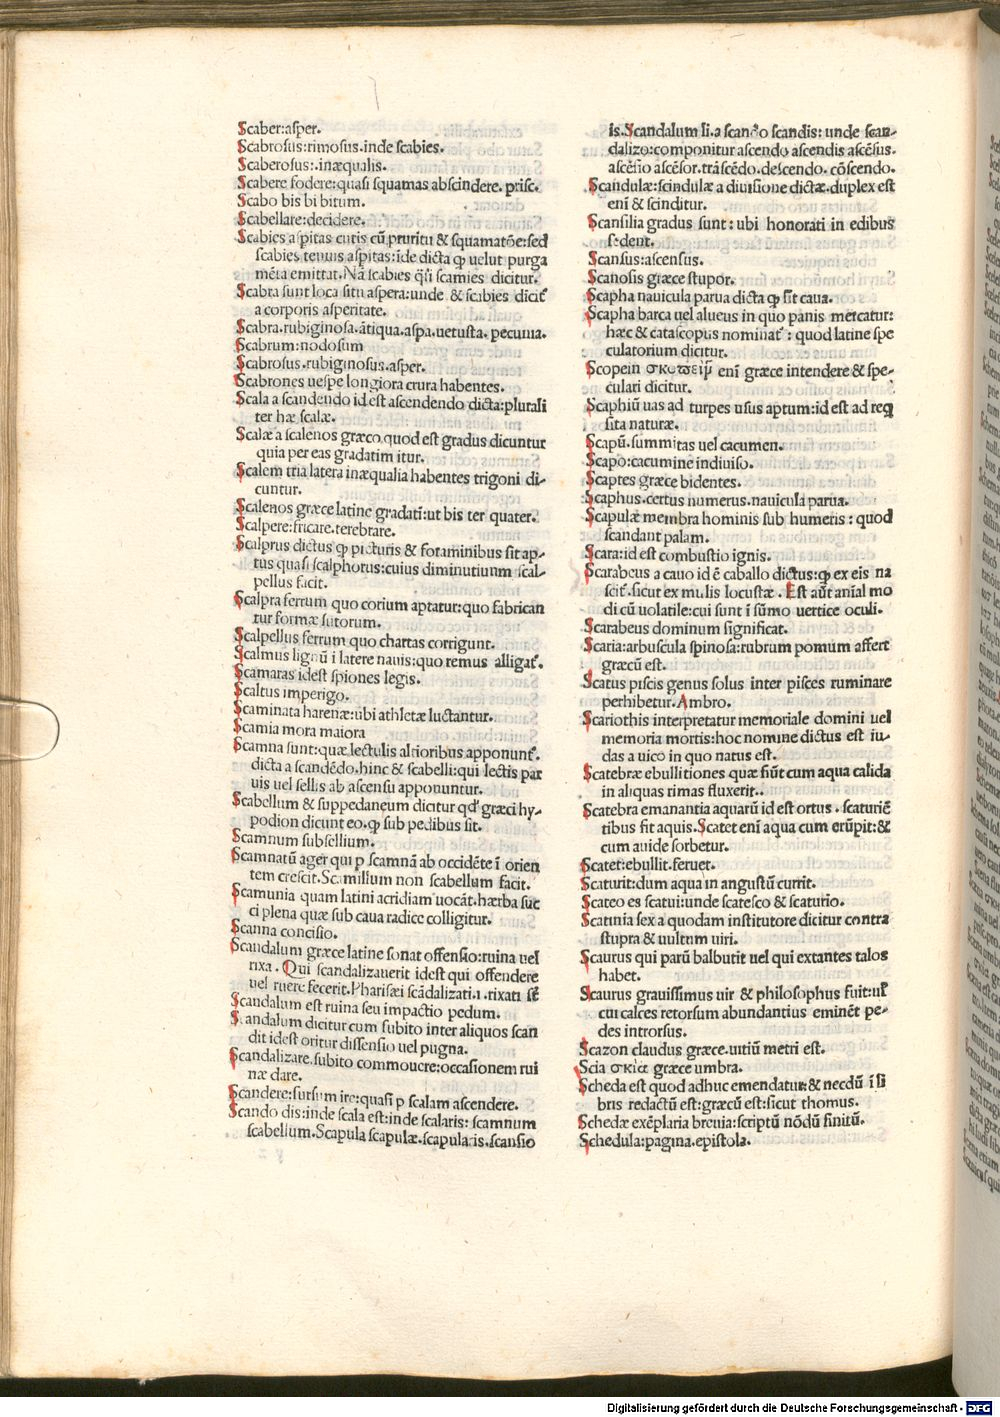 Scaber:asper.
Scabrosus:rimosus.inde scabies.
Scaberosus:.inæqualis.
Scabere fodere:quasi squamas abscindere. prisc.
Scabo bis bi bitum.
Scabellare:decidere.
Scabies aspitas cutis cū pruritu & squamatōe:sed
scabies tenuis aspitas:ide dicta ꝙ uelut purga
mēta emittat. Nā scabies q̄si scamies dicitur.
Scabra sunt loca situ aspera:unde & scabies dicit᷑
a corporis asperitate.
Scabra.rubiginosa.ātiqua.aspa.uetusta. pecunia.
Scabrum:nodosum
Scabrosus.rubiginosus.asper.
Scabrones uespe longiora crura habentes.
Scala a scandendo id est ascendendo dicta:plurali
ter hæ scalæ.
Scalæ a scalenos græco quod est gradus dicuntur
quia per eas gradatim itur.
Scalem tria latera inæqualia habentes trigoni di-
cuntur.
Scalenos græce latine gradati:ut bis ter quater.
Scalpere:fricare.terebrare.
Scalprus dictus ꝙ picturis & foraminibus sit ap-
tus quasi scalphorus:cuius diminutiuum scal-
pellus facit.
Scalpra ferrum quo corium aptatur:quo fabrican
tur formæ sutorum.
Scalpellus ferrum quo chartas corrigunt.
Scalmus lignū ī latere nauis:quo remus alligat᷑.
Scamaras idest spiones legis.
Scaltus imperigo.
Scaminata harenæ:ubi athletæ luctantur.
Scamia mora maiora
Scamna sunt:quæ lectulis altioribus apponunt᷑.
dicta a scandēdo.hinc & scabelli:qui lectis par
uis uel sellis ab ascensu apponuntur.
Scabellum & suppedaneum dicitur qd᷑ græci hy-
podion dicunt eo.ꝙ sub pedibus sit.
Scamnum subsellium.
Scamnatū ager qui p scamnā ab occidēte ī orien
tem crescit.Scamilium non scabellum facit.
Scamunia quam latini acridiam uocāt.hærba suc
ci plena quæ sub caua radice colligitur.
Scanna concisio.
Scandalum græce latine sonat offensio:ruina uel
rixa . Qui scandalizauerit idest qui offendere
uel ruere fecerit.Pharisæi scādalizati.i.rixati sē
Scandalum est ruina seu impactio pedum.
Scandalum dicitur cum subito inter aliquos scan
dit idest oritur dissensio uel pugna.
Scandalizare.subito commouere:occasionem rui
næ dare.
Scandere:sursum ire:quasi p scalam ascendere.
Scando dis:inde scala est:inde scalaris: scamnum
scabellum.Scapula scapulæ.scapularis.scansio
is.Scandalum li.a scando scandis: unde scan-
dalizo:componitur ascendo ascendis ascēsus.
ascēsio ascēsor.trāscēdo.descendo. cōscendo.
Scandulæ:scindulæ a diuisione dictæ.duplex est
enī & scinditur.
Scansilia gradus sunt: ubi honorati in edibus
sedent.
Scansus:ascensus.
Scanosis græce stupor.
Scapha nauicula parua dicta ꝙ sit caua.
Scapha barca uel alueus in quo panis mercatur:
hæc & catascopus nominat᷑ : quod latine spe
culatorium dicitur.
Scopein σκωπεῖν enī græce intendere & spe-
culari dicitur.
Scaphiū uas ad turpes usus aptum:id est ad req
sita naturæ.
Scapū.summitas uel cacumen.
Scapo:cacumine indiuiso.
Scaptes græce bidentes.
Scaphus.certus numerus.nauicula parua.
Scapulæ membra hominis sub humeris: quod
scandant palam.
Scara:id est combustio ignis.
Scarabeus a cauo id ē caballo dictus:ꝙ ex eis na
scit᷑.sicut ex mulis locustæ . Est aūt anīal mo
di cū uolatile:cui sunt ī sūmo uertice oculi.
Scarabeus dominum significat.
Scaria:arbuscula spinosa:rubrum pomum affert
græcū est.
Scatus piscis genus solus inter pisces ruminare
perhibetur.Ambro.
Scariothis interpretatur memoriale domini uel
memoria mortis:hoc nomine dictus est iu-
das a uico in quo natus est.
Scatebræ ebullitiones quæ fiūt cum aqua calida
in aliquas rimas fluxerit..
Scatebra emanantia aquarū id est ortus . scaturiē
tibus fit aquis.Scatet enī aqua cum erūpit:&
cum auide sorbetur.
Scatet:ebullit.feruet.
Scaturit:dum aqua in angustū currit.
Scateo es scatui:unde scatesco & scaturio.
Scatinia sex a quodam institutore dicitur contra
stupra & uultum uiri.
Scaurus qui parū balbutit uel qui extantes talos
habet.
Scaurus grauissimus uir & philosophus fuit:ul᷑
cui calces retorsum abundantius eminēt pe-
des introrsus.
Scazon claudus græce.uitiū metri est.
Scia σκια græce umbra.
Scheda est quod adhuc emendatur:& necdū ī li
bris redactū est:græcū est:sicut thomus.
Schedæ exēplaria breuia:scriptū nōdū finitū.
Schedula:pagina.epistola.
Digitalisierung gefördert durch die Deutsche Forschungsgemeinschaft - DFG